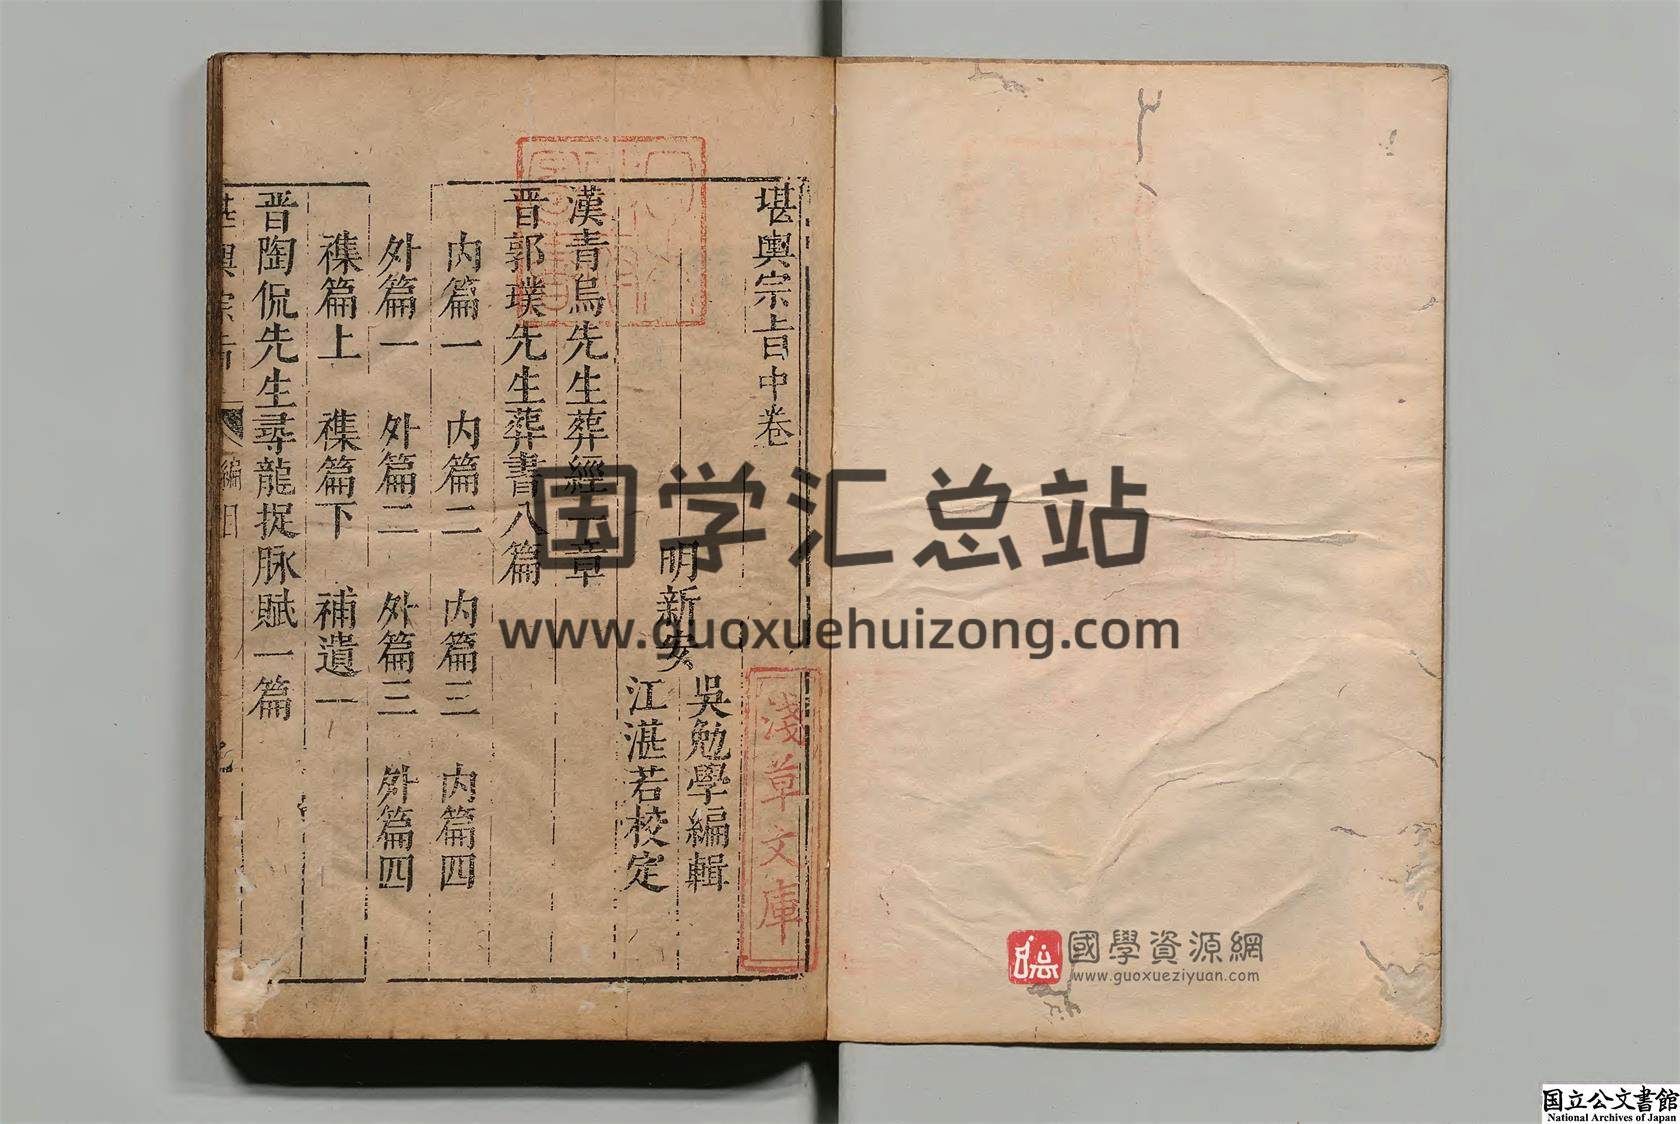 堪輿宗旨中卷
明新安
吳勉學編輯
江湛若校定
漢青烏先生葬經
章
晉郭璞先生葬書八篇
內篇一 內篇二 內篇三 內篇四
外篇一 外篇二 外篇三 外篇四
襍篇上 襍篇下 補遺一
晉陶侃先生尋龍捉脉賦一篇
輿宗旨
編目
淺草文庫
国学汇总站
www.guoxuehuizong.com
國學資源網
www.guoxueziyuan.com
国立公文書館
National Archives of Japan